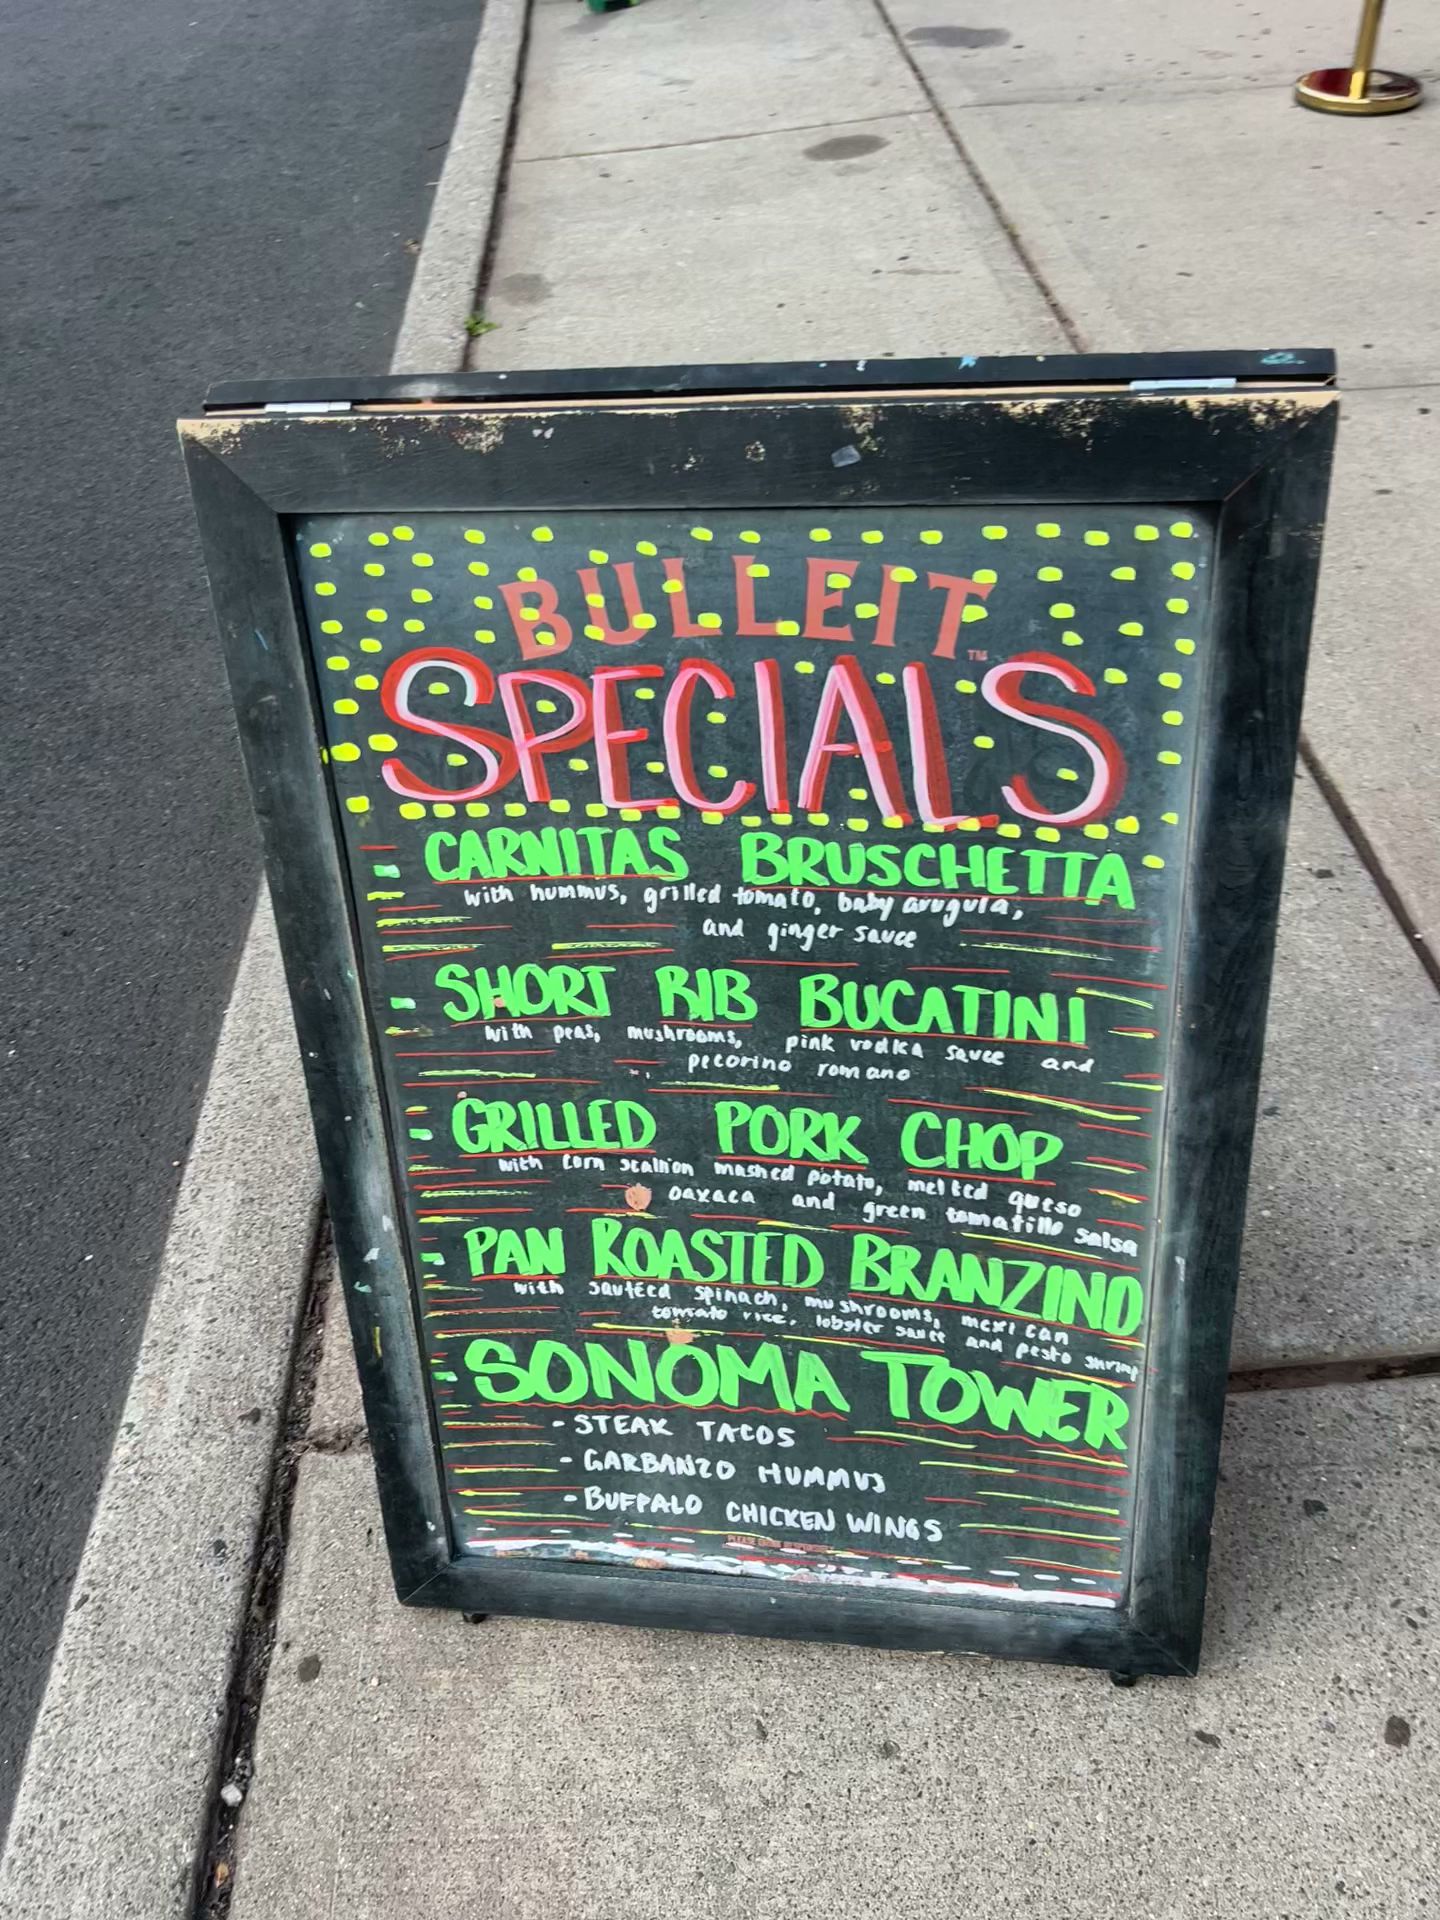 BULLEIT TM
SPECIALS
CARNITAS BRUSCHETTA
with hummus, grilled tomato, baby arugula,
and ginger sauce
SHORT RIB BUCATINI
with peas, mushrooms, pink vodka sauce and
pecorino romano
GRILLED PORK CHOP
with corn scallion mashed potato, melted queso
oaxaca and green tomatillo salsa
PAN ROASTED BRANZINO
with sautéed spinach, mushrooms, mexican
tomato rice, lobster sauce and pesto shrimp
SONOMA TOWER
- STEAK TACOS
- GARBANZO HUMMUS
- BUFFALO CHICKEN WINGS